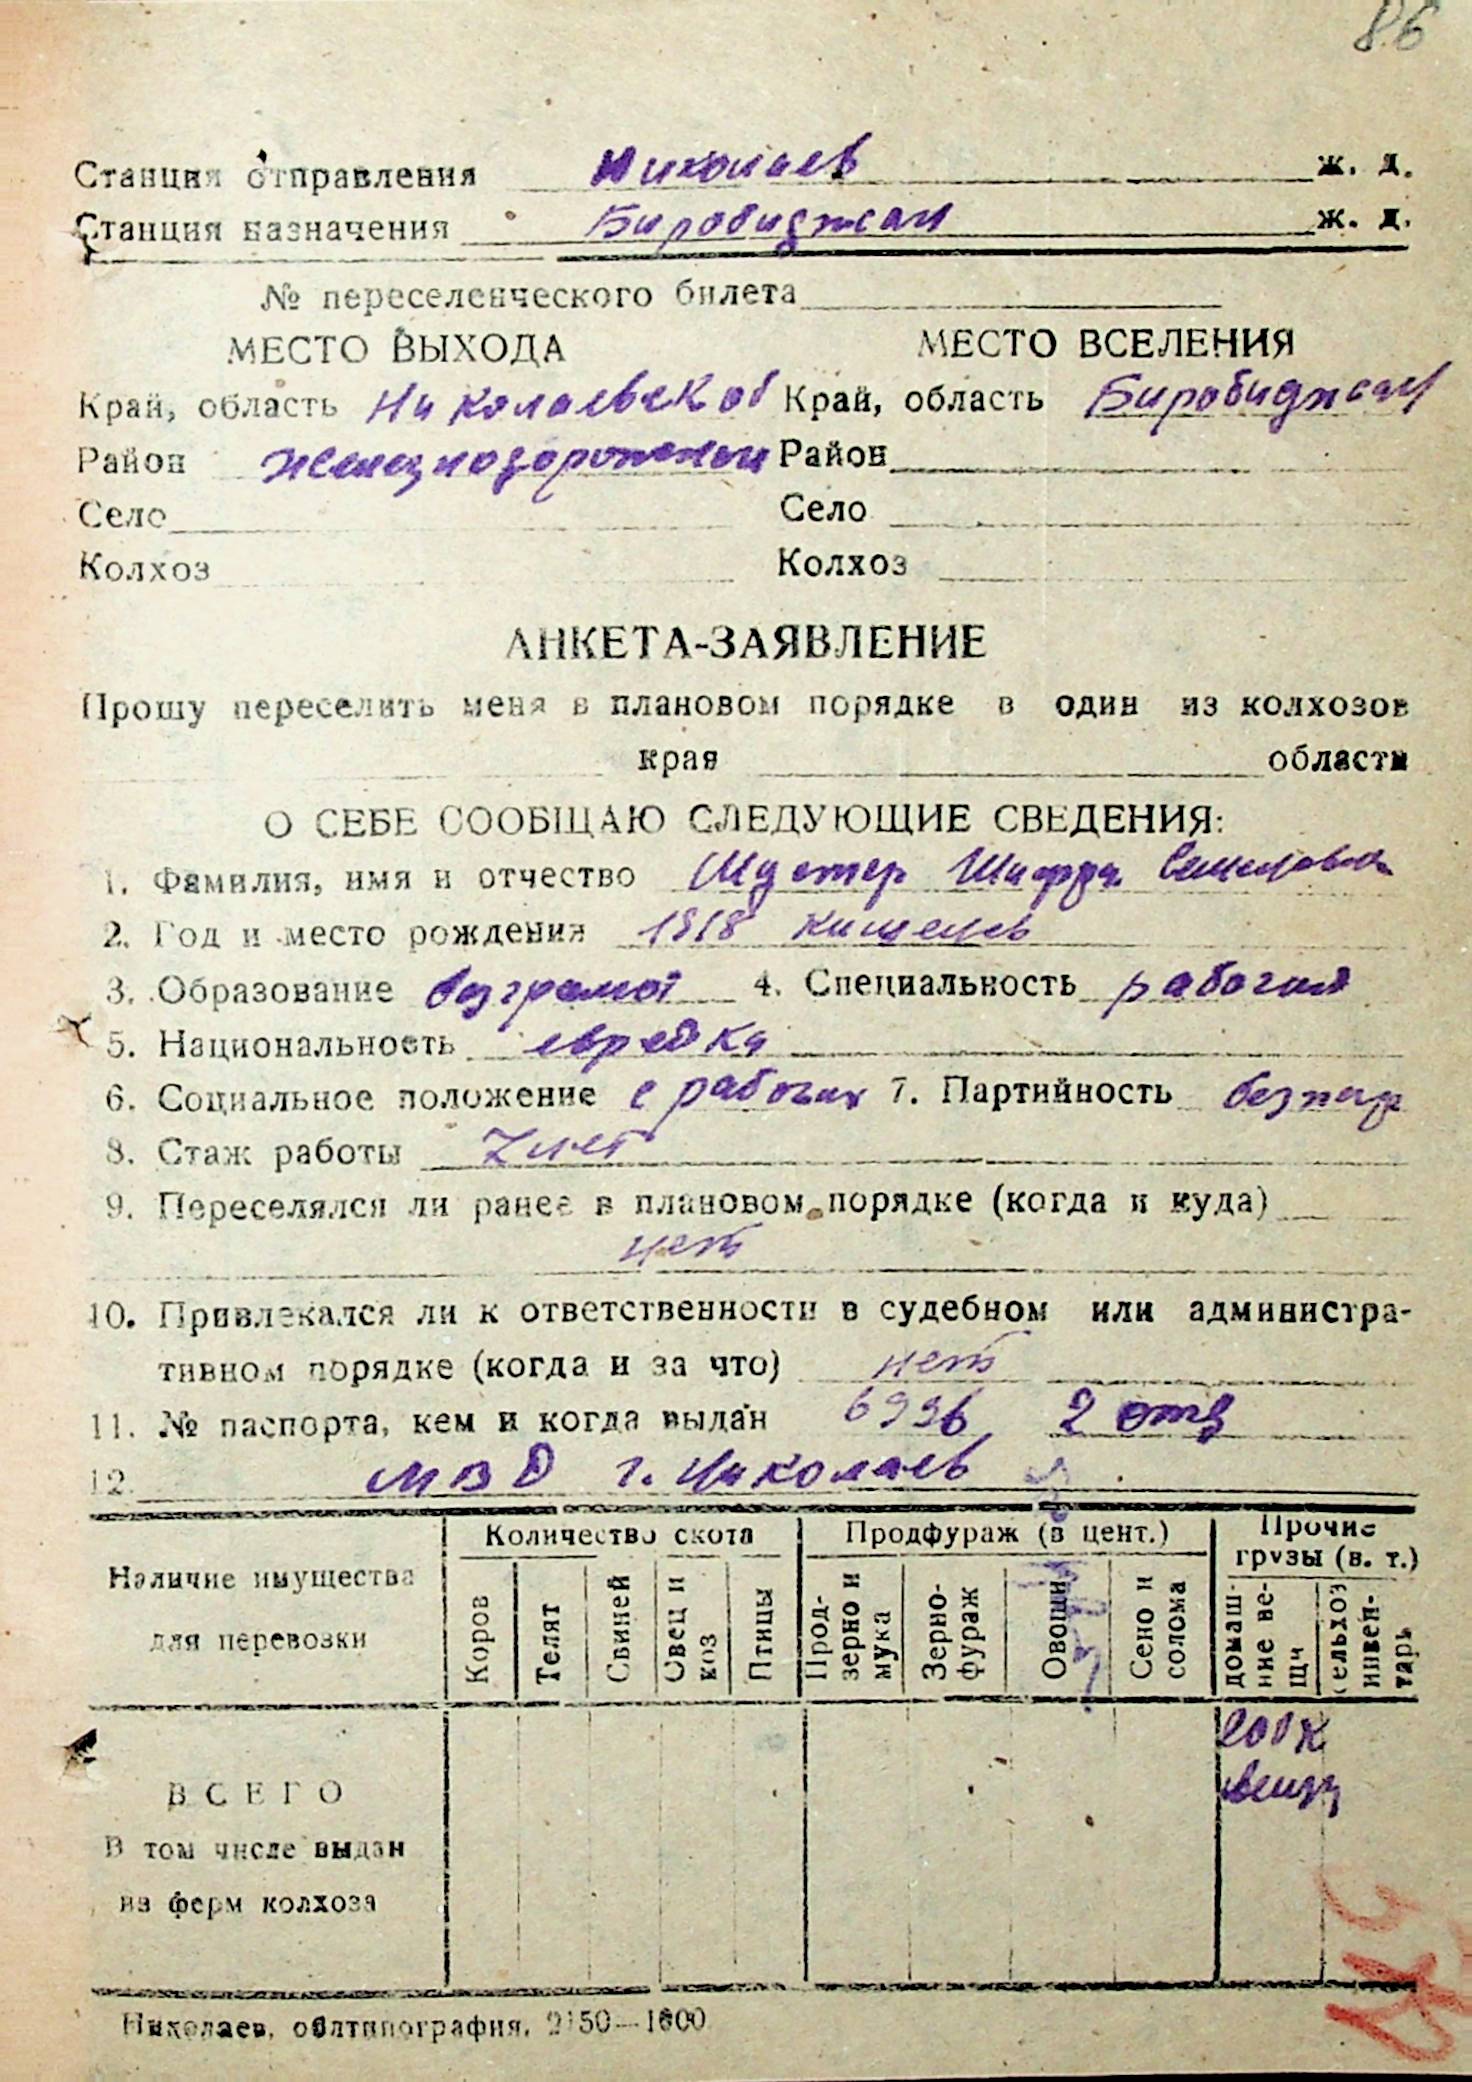 86
Станция отправления Николаев ж. д.
Станция назначения Биробиджан ж. д.
№ переселенческого билета
МЕСТО ВЫХОДА
Край, область Николаевск об
Район Железнодорожный
Село
Колхоз
МЕСТО ВСЕЛЕНИЯ
Край, область Биробиджан
Район
Село
Колхоз
АНКЕТА-ЗАЯВЛЕНИЕ
Прошу переселить меня в плановом порядке в один из колхозов
края области
О СЕБЕ СООБЩАЮ СЛЕДУЮЩИЕ СВЕДЕНИЯ:
1. Фамилия, имя и отчество Шустер Шифра
2. Год и место рождения 1918
3. Образование безграмот 4. Специальность рабочая
5. Национальность еврейка
6. Социальное положение с рабочих 7. Партийность безпар
8. Стаж работы 7 лет
9. Переселялся ли ранее в плановом порядке (когда и куда)
нет
10. Привлекался ли к ответственности в судебном или администра-
тивном порядке (когда и за что) нет
11. № паспорта, кем и когда выдан 6996 2 отд
12. МВД г. Николаев
Наличие имущества
для перевозки
Количество скота
Коров
Телят
Свиней
Овец и
коз
Птицы
Продфураж (в цент.)
Прод-
зерно и
мука
Зерно-
фураж
Овощи
Сено и
солома
Прочие
грузы (в. т.)
домаш-
ние ве-
щи
сельхоз
инвен-
тарь
ВСЕГО
В том числе выдан
из ферм колхоза
200 к
вещ
Николаев, облтипография. 2150—1600